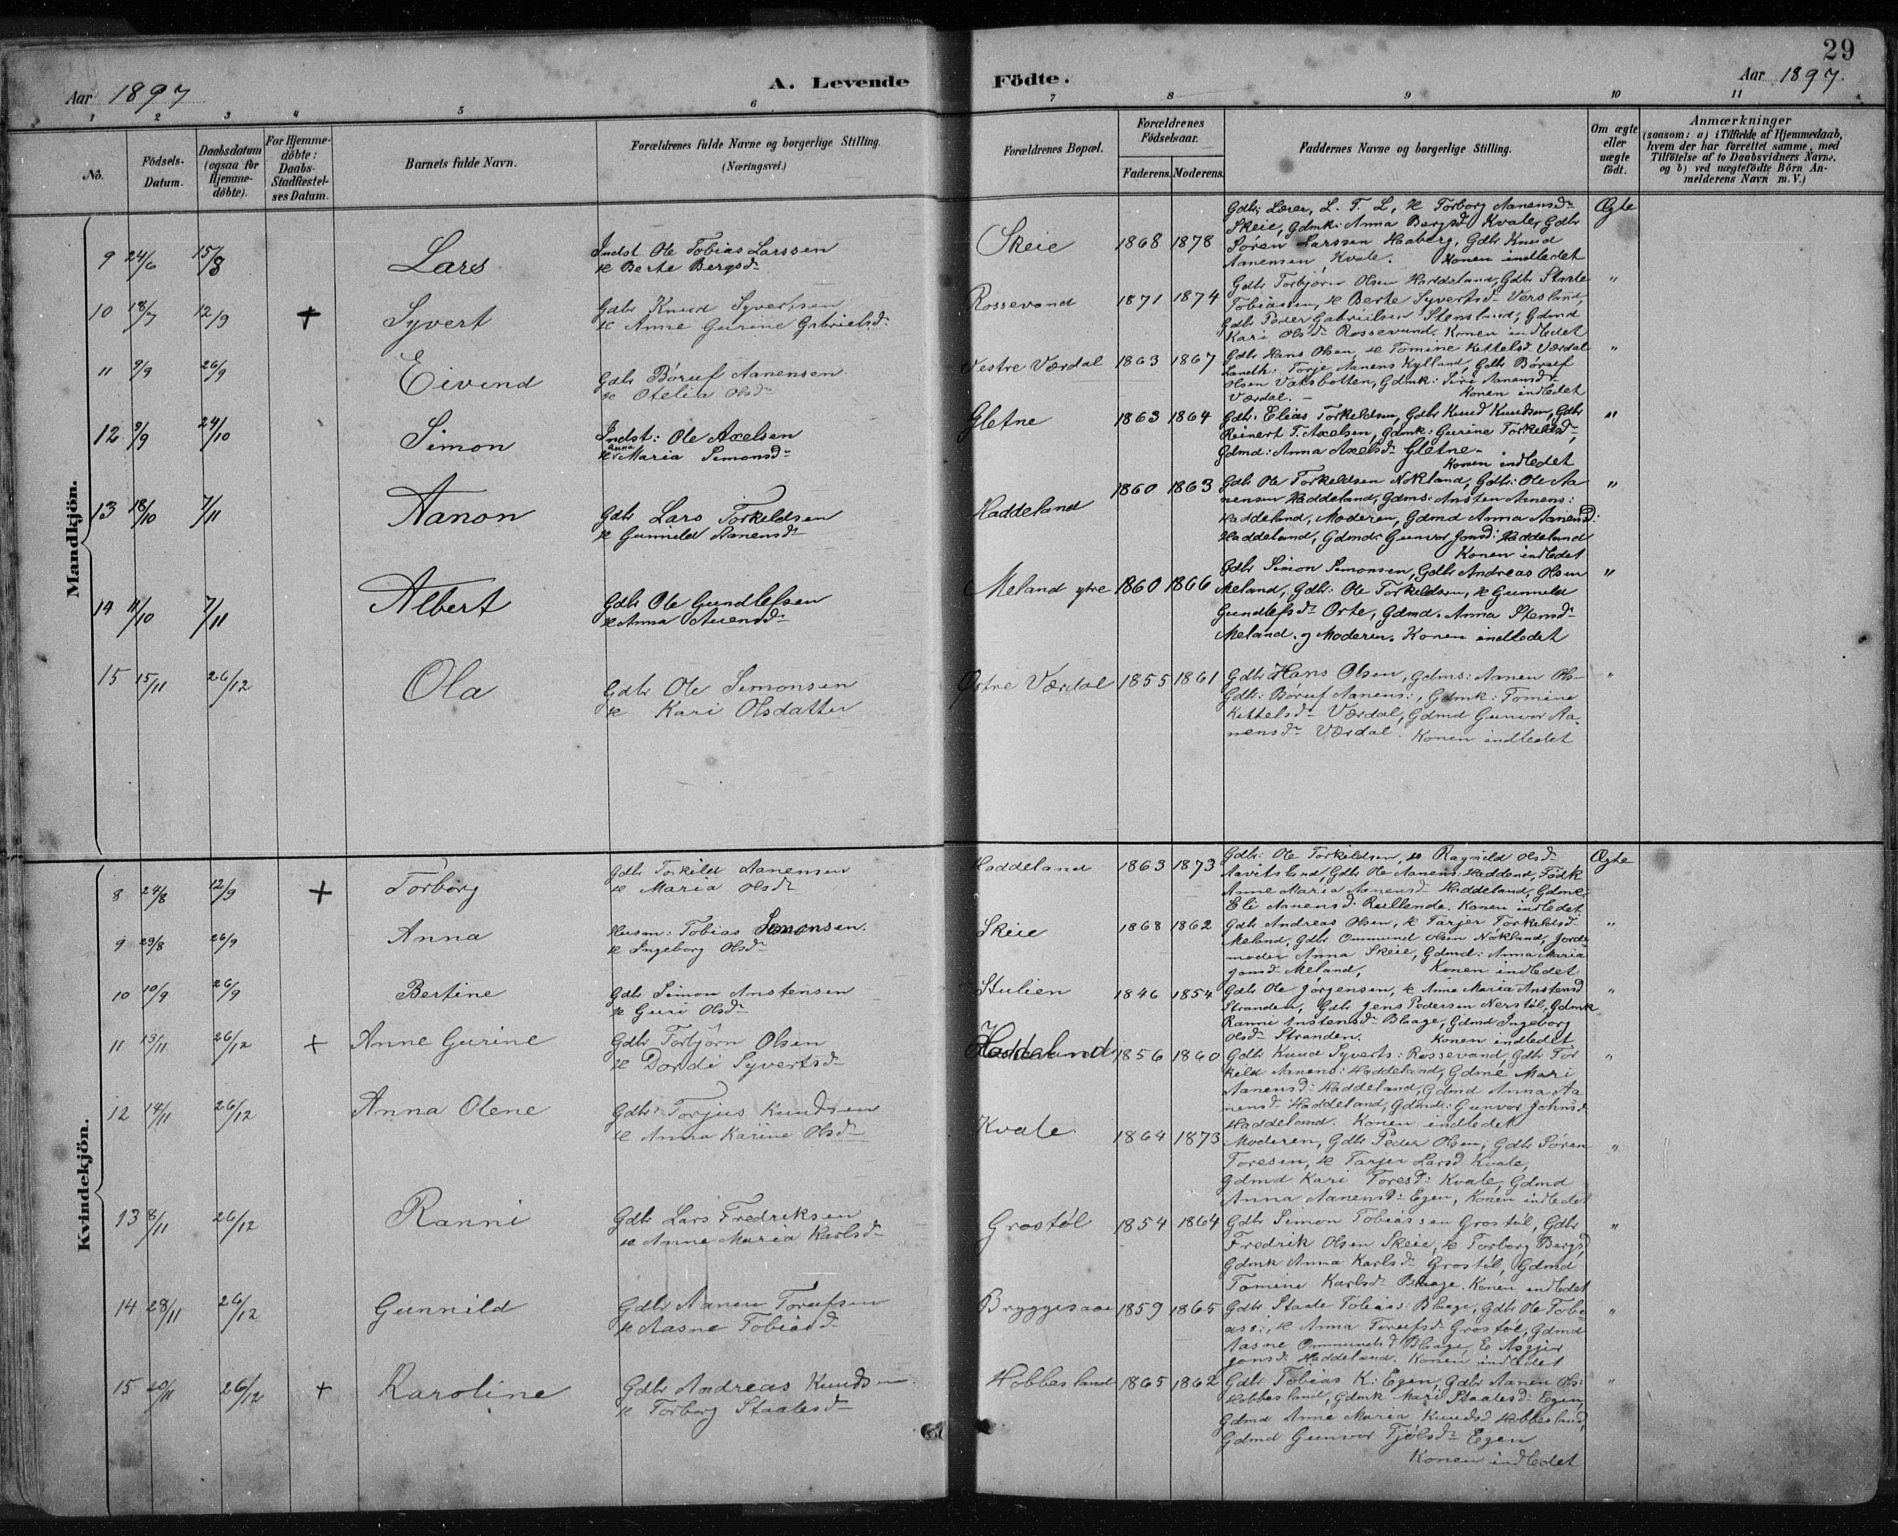 29
Aar 1897. A. Levende Födte. Aar 1897.
1 2 3 4 5 6 7 8 9 10 11
No.
Födsels-
Datum.
Daabsdatum
(ogsaa for
Hjemme-
döbte).
For Hjemme-
döbte:
Daabs-
Stadfæstel-
ses Datum.
Barnets fulde Navn.
Forældrenes fulde Navne og borgerlige Stilling.
(Næringsvei.)
Forældrenes Bopæl.
Forældrenes
Födselsaar.
Faderens. Moderens.
Faddernes Navne og borgerlige Stilling.
Om ægte
eller
uægte
födt.
Anmærkninger
(saasom: a) i Tilfælde af Hjemmedaab,
hvem der har forrettet samme, med
Tilföielse af to Daabsvidners Navne,
og b) ved uægtefödte Börn An-
melderens Navn m. V.)
Mandkjön.
9 24/6 15/8 Lars
Indst Ole Tobias Larssen
& Berte Bergsdr
Skeie 1868 1878
Gdbr: Lærer, L. T. L, & Torborg Aanensdr
Skeie, Gdmk: Anna Bergsd Kvale, Gdbr
Søren Larssen Haaberg, Gdbr Knud
Aanensen Kvale. Konen indledet
Ægte
10 18/7 12/9 + Syvert
Gdbr Knud Syvertsen
& Anne Gurine Gabrielsd:
Rossevand 1871 1874
Gdbr Torbjørn Olsen Haddeland, Gdbr Staale
Tobiassen, & Berte Syvertsdr Versland,
Gdbr Peder Gabrielsen Stensland, Gdmd
Kari Olsdr Rossevand. Konen indledet
"
11 9/9 26/9 Eivind
Gdbr Børuf Aanensen
& Otelia Olsdr
Vestre Værdal 1863 1867
Gdbr Hans Olsen, & Tomine Kittelsd. Værdal
Landh: Torje Aanens Kylland, Gdbr Børuf
Olsen Vatsbotten, Gdmk: Siri Aanensdr
Værdal. – Konen indledet
"
12 9/9 24/10 Simon
Indst: Ole Axelsen
& Anna Maria Simonsdr
Gletne 1863 1864
Gdbr. Elias Torkeldsen, Gdbr Knud Knudsen, Gdbr
Reinert T. Axelsen, Gdmk: Gurine Torkeldsdr,
Gdmd: Anna Axelsdr Gletne.
Konen indledet
"
13 18/10 7/11 Aanon
Gdbr Lars Torkeldsen
& Gunnild Aanensdr
Haddeland 1860 1863
Gdbr Ole Torkeldsen Nøkland, Gdbr: Ole Aa-
nensen Haddeland, Gdms: Ansten Aanens:
Haddeland, Moderen, Gdmd Anna Aanensd:
Haddeland, Gdmd: Gunvor Jonsd: Haddeland
Konen indledet
"
14 11/10 7/11 Albert
Gdbr Ole Gundlefsen
& Anna
Meland ytre 1860 1866
Gdbr Simon Simonsen, Gdbr Andreas Olsen
Meland, Gdbr: Ole Torkeldsen, & Gunnild
Gundlefsdr Orte, Gdmd. Anna Stensdr
Meland. og Moderen. Konen indledet
"
15 15/11 26/12 Ola
Gdbr Ole Simonsen
& Kari Olsdatter
Østre Værdal 1855 1861
Gdbr Hans Olsen, Gdms: Aanen Ols-
Gdbr: Børuf Aanens:, Gdmk: Tomine
Kittelsdr Værdal, Gdmd Gunvor Aa-
nensdr Værdal. Konen indledet
"
Kvindekjön.
8 24/8 12/9 + Torborg
Gdbr Torkild Aanensen
& Maria Olsdr
Haddeland 1863 1873
Gdbr: Ole Torkildsen, & Ragnild Olsdr
Aavitsland, Gdbr Ole Aanens. Haddeland,
Anne Maria Aanensdr Haddeland, Gdmk
Eli Aanensd. Konen indledet
Ægte
9 23/8 26/9 Anna
Husm: Tobias Simonsen.
& Ingeborg Olsdr
Skeie 1868 1862
Gdbr Andreas Olsen, & Tarjer Torkeldsd.
Meland, Gdbr Ommund Olsen Nøkland, Jorde-
moder Anna Skeie, Gdmd: Anna Maria
Jonsdr Meland, Konen indledet
"
10 10/9 26/9 Bertine
Gdbr Simon Anstensen
& Guri Olsdr
Stulien 1846 1854
Gdbr Ole Jørgensen, & Anne Maria Anstensd
Stranden, Gdbr Jens Pedersen Nerstøl, Gdmk
Ranni Anstensdr Blaage, Gdmd Ingeborg
Olsdr Stranden. Konen indledet
"
11 13/11 26/12 + Anne Gurine
Gdbr Torbjörn Olsen
& Dordi Syvertsdr
Haddeland 1856 1860
Gdbr Knud Syverts: Rossevand, Gdbr Tor
keld Aanens: Haddeland, Gdmk Mari
Aanensd: Haddeland, Gdmd Anna Aa-
nensdr Haddeland, Gdmd: Gunvor Johnsd
Haddeland. Konen indledet
"
12 14/11 26/12 Anna Olene
Gdbr Torjus Knudsen
& Anna Karine Olsdr
Kvale 1864 1873
Moderen, Gdbr Peder Olsen, Gdbr Søren
Toresen, & Tarjer Larsd Kvale,
Gdmd Kari Toresd: Kvale, Gdmd
Anna Aanensd: Egen, Konen indledet
"
13 8/11 26/12 Ranni
Gdbr Lars Fredriksen
& Anne Maria Karlsdr
Grostøl 1854 1864
Gdbr Simon Tobiassen Grostøl, Gdbr
Fredrik Olsen Skeie, & Torborg Bergsd,
Gdmk Anna Karlsdr Grostøl, Gdmd
Tomine Karlsdr Blaage. Konen indledet
"
14 28/11 26/12 Gunnild
Gdbr Aanen Torufsen
& Aasne Tobiasd
Bryggesaae 1859 1865
Gdbr Staale Tobias: Blaage, Gdbr Ole Tobi-
ass:, & Anna Torufsdr Grostøl, Gdmd
Aasne Ommundsd Blaage, E Asgjer
Jonsdr Haddeland. Konen indledet
"
15 20/11 26/12 + Karoline
Gdbr Andreas Knudsen
& Torborg Staalesdr
Hobbesland 1865 1862
Gdbr Tobias K: Egen, Gdbr Aanen Ols:
Hobbesland, Gdmk Mari Staalesd: Egen,
Gdmd Anne Maria Knudsd Hobbesland,
Gdmd Gunvor Tjølsdr Egen
Konen indledet
"